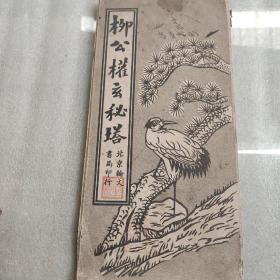 柳公权玄秘塔
北京翰文
书局印行